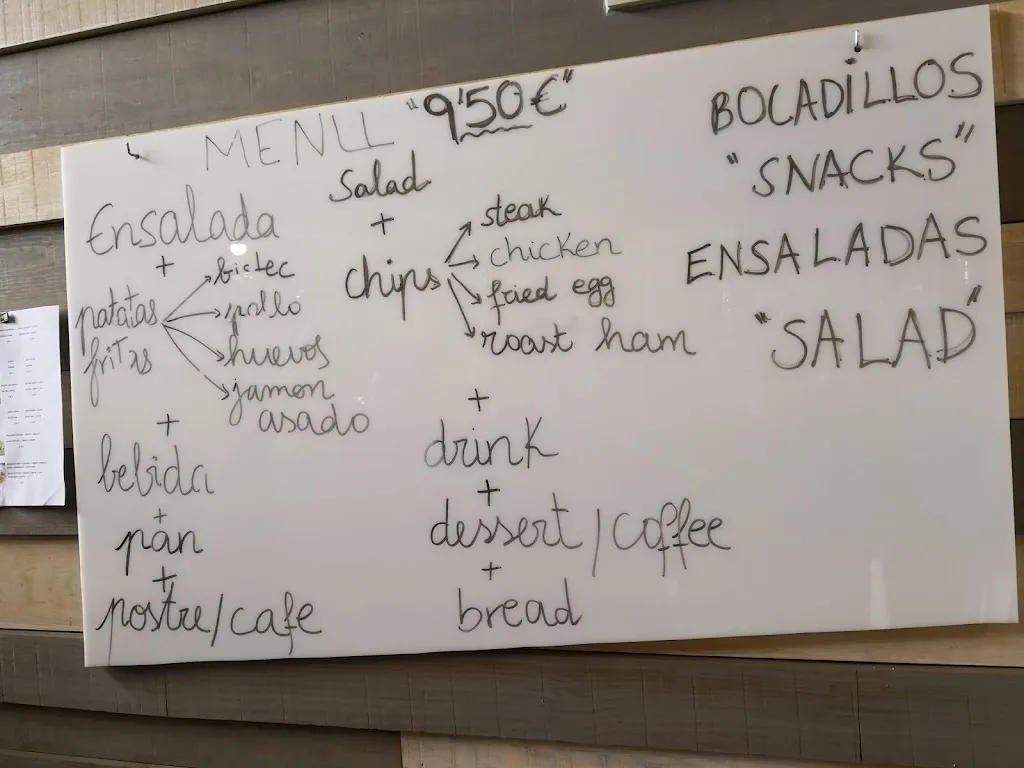 MENU "9'50€"
Ensalada
+
patatas
fritas
bictec
pollo
huevos
jamon
asado
+
bebida
+
pan
+
postre/cafe
Salad
+
chips
steak
chicken
fried egg
roast ham
+
drink
+
dessert/coffee
+
bread
BOCADiLLOS
"SNACKS"
ENSALADAS
"SALAD"